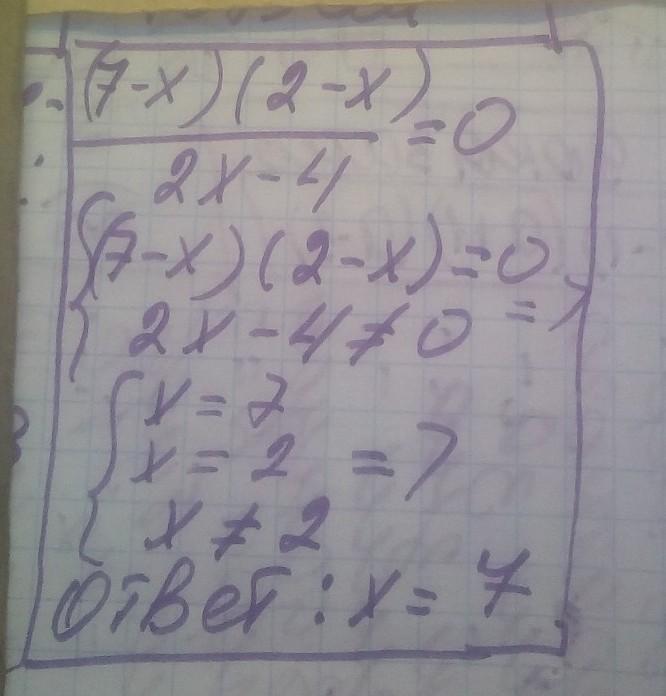 (7-x)(2-x)
= 0
2x-4
(7-x)(2-x)=0
2x-4≠0 =>
x=7
x=2 =>
x≠2
Ответ: x=7